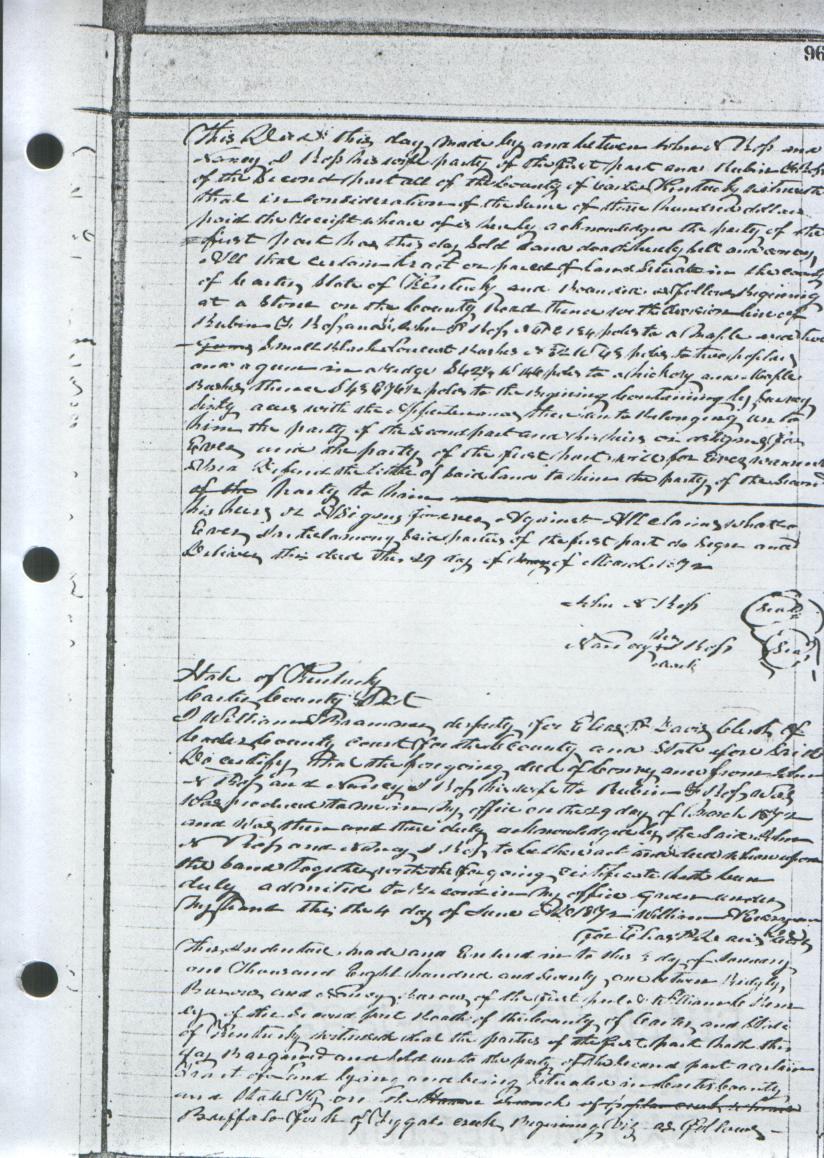 96
This Deed this day made by and between John N Ross and
Nancy J Ross his wife party of the first part and Rubin G Ross
of the Second part all of the County of Carter Kentucky witnesseth
that in consideration of the Sume of three hundred dollars
paid the Receipt where of is hereby acknowledge the party of the
first part has this day Sold and doth hereby sell and convey
All that certain tract or parcel of Land Situate in the county
of Carter State of Kentucky and Bounded as follows Begining
at a Stone on the County Road thence with the division line of
Rubin G Ross and John N Ross N 47 E 154 poles to a Maple and two
Small Black Locust Bushes N 32 W 48 poles to two poplars
and a gum in a Ridge S 42½ W 144 poles to a hickory and Maple
Bushes thence S 48 E 74½ poles to the Begining Containing by Survey
Sixty acres with the Appertenances there unto Belonging unto
him the party of the Second part and his heirs or assigns for
Ever and the party of the first part will for Ever warrant
and Defend the title of Said land to him the party of the Second
of the party to him
his heirs or Assigns forever Against All claims whatso
Ever In testamony Said parties of the first part do Sign and
Deliver this deed this 29 day of of March 1872
John N Ross Seal
Nancy J Ross Seal
her
mark
State of Kentucky
Carter County Sct
I William deputy for Elias P Davis Clerk of
Carter County court for the County and State afore Said
Do certify that the forgoing deed of Convey ance from John
N Ross and Nancy J Ross his wife to Rubin G Ross Was
Was produced to me in My office on the 29 day of March 1872
and Was then and there duly acknowledged by the Said John
N Ross and Nancy J Ross to be their act and deed whereupon
the Same Together with the forgoing Certificate hath been
duly admited to Record in My office Given under
My hand this the 4 day of June 1872 William
For Elias P Davis Clerk
This Indenture made and Entered in to this 5 day of January
one Thousand Eight hundred and Seventy one between Ridgly
Barow and Nancy Barow of the First part &
of the Second part Booth of the County of Carter and State
of Kentucky witnesseth that the parties of the First part hath this
day Bargained and Sold unto the party of the Second part a certain
Tract of Land lying and being Situated in Carter County
and State Ky on the branch of
Buffalo fork of Tygarts creek Begining Viz as Follows